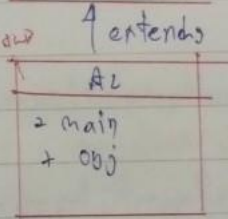 extends
AL
+ main
+ obj